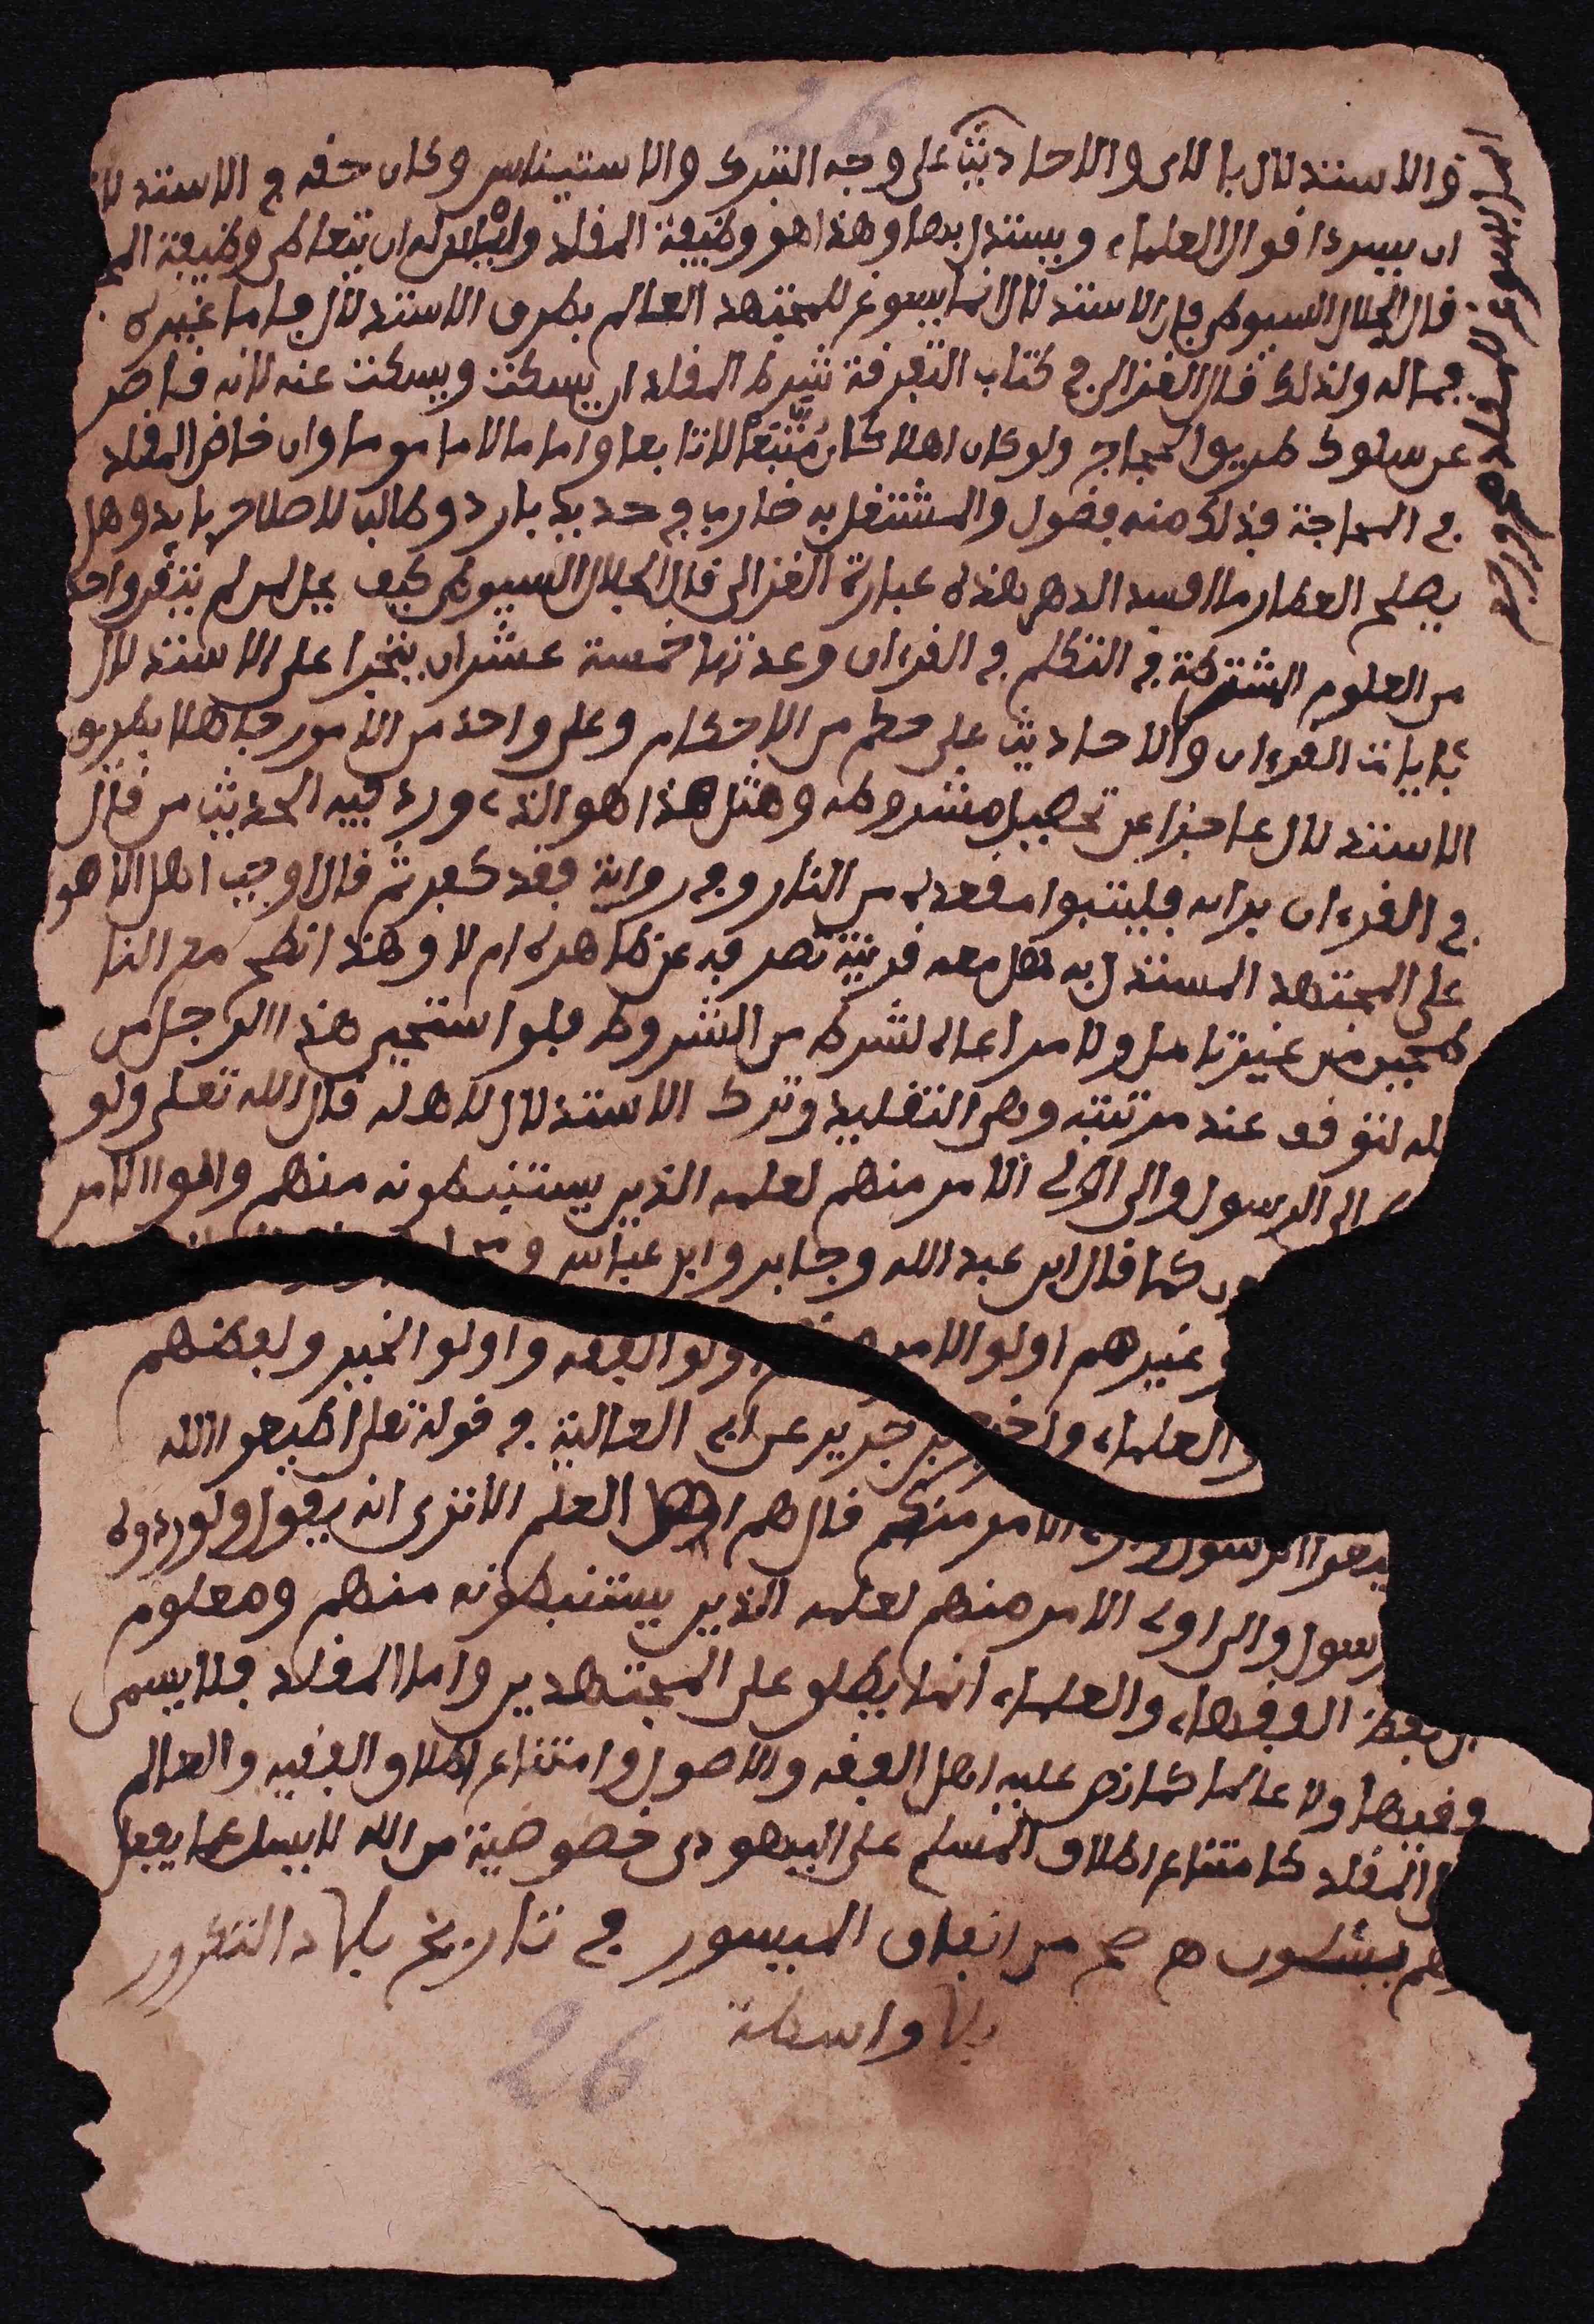 26
و الاستدلال بالاى والاحاديث على وجه التبرك والاستيناس وكان حقه في الاستدلا
ان يسرد اقوال العلماء ويستدل بها وهذا هو وظيفة المقلد وليس له ان يتعاطى وظيفة
قال الجلال السيوطى فان الاستدلال انما يسوغ للمجتهد العالم بطرق الاستدلال فاما غيره
فماله ولذلك قال الغزالى في كتاب التفرقة شرط المقلد ان يسكت ويسكت عنه لانه قاصر
عن سلوك طريق الحجاج ولو كان اهلا كان متبعا لا تابعا واماما لا ماموما وان خاض المقلد
في المحاجة فذلك منه فضول والمشتغل به ضارب في حديد بارد وطالب لاصلاح فاسد وهل
يصلح العطار ما افسد الدهر هذه عبارة الغزالى قال الجلال السيوطى كيف يحل لمن لم يتقن واحد
من العلوم المشترطة في التكلم في القرءان وعدتها خمسة عشر ان يتجرا على الاستدلال
بئايات القرءان والاحاديث على حكم من الاحكام وعلى واحد من الامور جاهلا بطريق
الاستدلال عاجزا عن تحصيل شروطه ومثل هذا هو الذى ورد فيه الحديث من قال
في القرءان برايه فليتبوا مقعده من النار وفي رواية فقد كفر ثم قال اوجب اهل الاصو
على المجتهد المستدل به هل معه قرينة تصرفه عن ظاهره ام لا وهذا انطح مع النا
طحين من غير تامل ولا مراعاة لشرط من الشروط فلو استحيى هذا الرجل من
لله لتوقف عند مرتبته وهى التقليد وترك الاستدلال لاهله قال الله تعلى ولو
الى الرسول والى اولى الامر منهم لعلمه الذين يستنبطونه منهم واولوا الامر
كما قال ابن عبد الله وجابر وابن عباس
وغيرهم اولو الامر اولوا الفقه واولو الخير وبعضهم
والعلماء واخرج ابن جرير عن ابى العالية في قوله تعلى اطيعوا الله
الرسول واولى الامر منكم قال هم اهل العلم الا ترى انه يقول ولو ردوه
رسول والى اولى الامر منهم لعلمه الذين يستنبطونه منهم ومعلوم
ان لفظ الفقهاء والعلماء انما يطلق على المجتهدين واما المقلد فلا يسمى
فقيها ولا عالما كما نص عليه اهل الفقه والاصول وامتناع اطلاق الفقيه والعالم
المقلد كامتناع اطلاق المسلم على اليهودى خصوصية من الله لا يسئل عما يفعل
وهم يسئلون هـ صح من انفاق الميسور في تاريخ بلاد التكرور
بلا واسطة
26